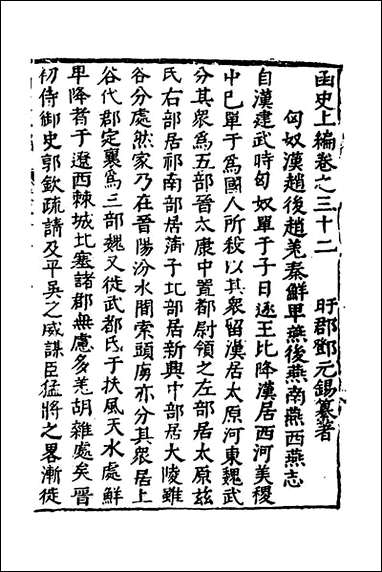 函史上編卷之三十二　　盱郡鄧元錫纂著
匈奴漢趙後趙羌秦鮮卑燕後燕南燕西燕志
自漢建武時匈奴單于子日逐王比降漢居西河美稷
中巳單于為國人所殺以其衆留漢居太原河東魏武
分其衆為五部晉太康中置都尉領之左部居太原茲
氏右部居祁南部居蒲子北部居新興中部居大陵雖
谷分處然家乃在晉陽汾水間索頭虜亦分其衆居上
谷代郡定襄為三部魏又徙武都氐于扶風天水處鮮
卑降者于遼西棘城北塞諸郡無慮多羌胡雜處矣晉
初侍御史郭欽疏請及平吳之威謀臣猛將之畧漸徙